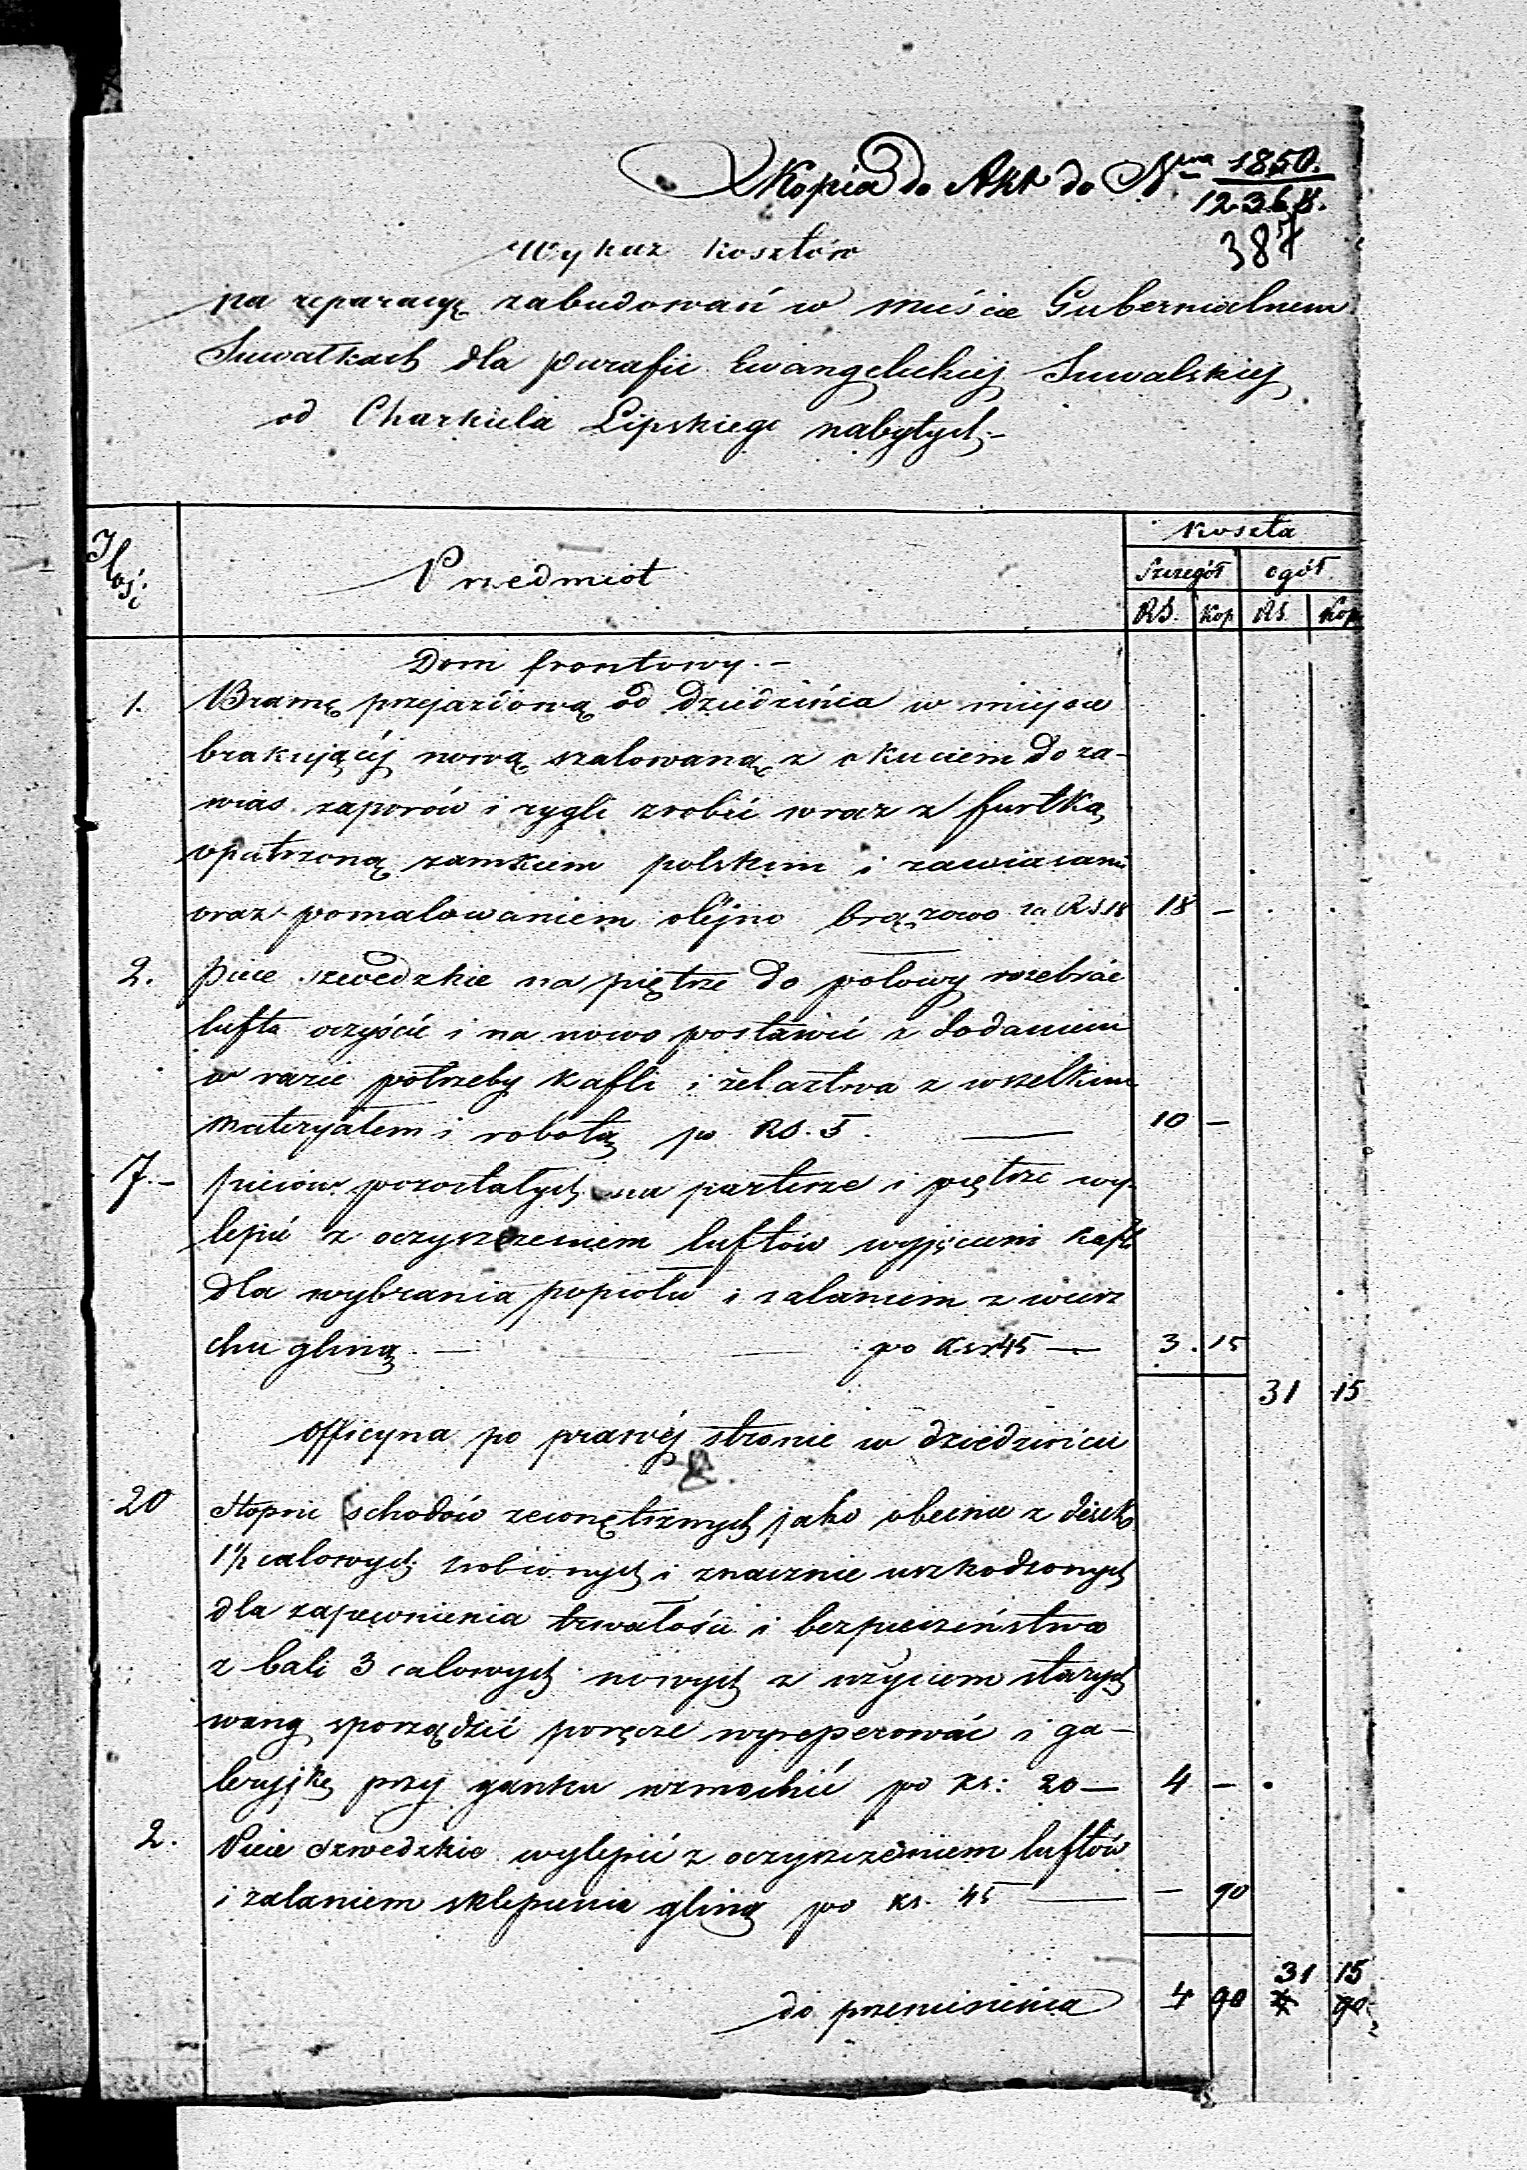 Kopia do Akt do Nra 1850.
12368.
387
Wykaz kosztów
na reparacyę zabudowań w mieście Gubernialnem
Suwałkach dla parafii Ewangelickiej Suwalskiej
od Charkiela Lipskiego nabytych.-
Ilość
Przedmiot
Koszta
Szczegół ogół
RS. Kop RS. Kop
Dom frontowy.-
1. Bramę przejazdową od dziedzińca w miejsce
brakującej nową szalowaną z okuciem do za-
wias zaporów i rygli zrobić wraz z furtką
opatrzoną zamkiem polskim i zawiasami
oraz pomalowaniem olejno brązowo za RS 18 18 -
2. piece szwedzkie na piętrze do połowy rozebrać
lufta oczyścić i na nowo postawić z dodaniem
w razie potrzeby kafli i żelaztwa z wszelkim
materyałem i robotą po RS. 5. 10 -
7.- pieców pozostałych na parterze i piętrze wy-
lepić z oczyszczeniem luftów wyjęciem kafli
dla wybrania popiołu i zalaniem z wierz
chu gliną - po Ksr 45 - 3. 15
31 15
Officyna po prawej stronie w dziedzińcu
20 Stopni schodów zewnętrznych jako obecnie z desek
1½ calowych zrobionych i znacznie uszkodzonych
dla zapewnienia trwałości i bezpieczeństwa
z bali 3 calowych nowych z użyciem starych
wang sporządzić poręcze wyreperować i ga-
leryjkę przy ganku wzmocnić po ks: 20 - 4 -
2. Piece szwedzkie wylepić z oczyszczeniem luftów
i zalaniem sklepienia gliną po ks. 45 - 90
31 15
do przeniesienia 4 90 4 90